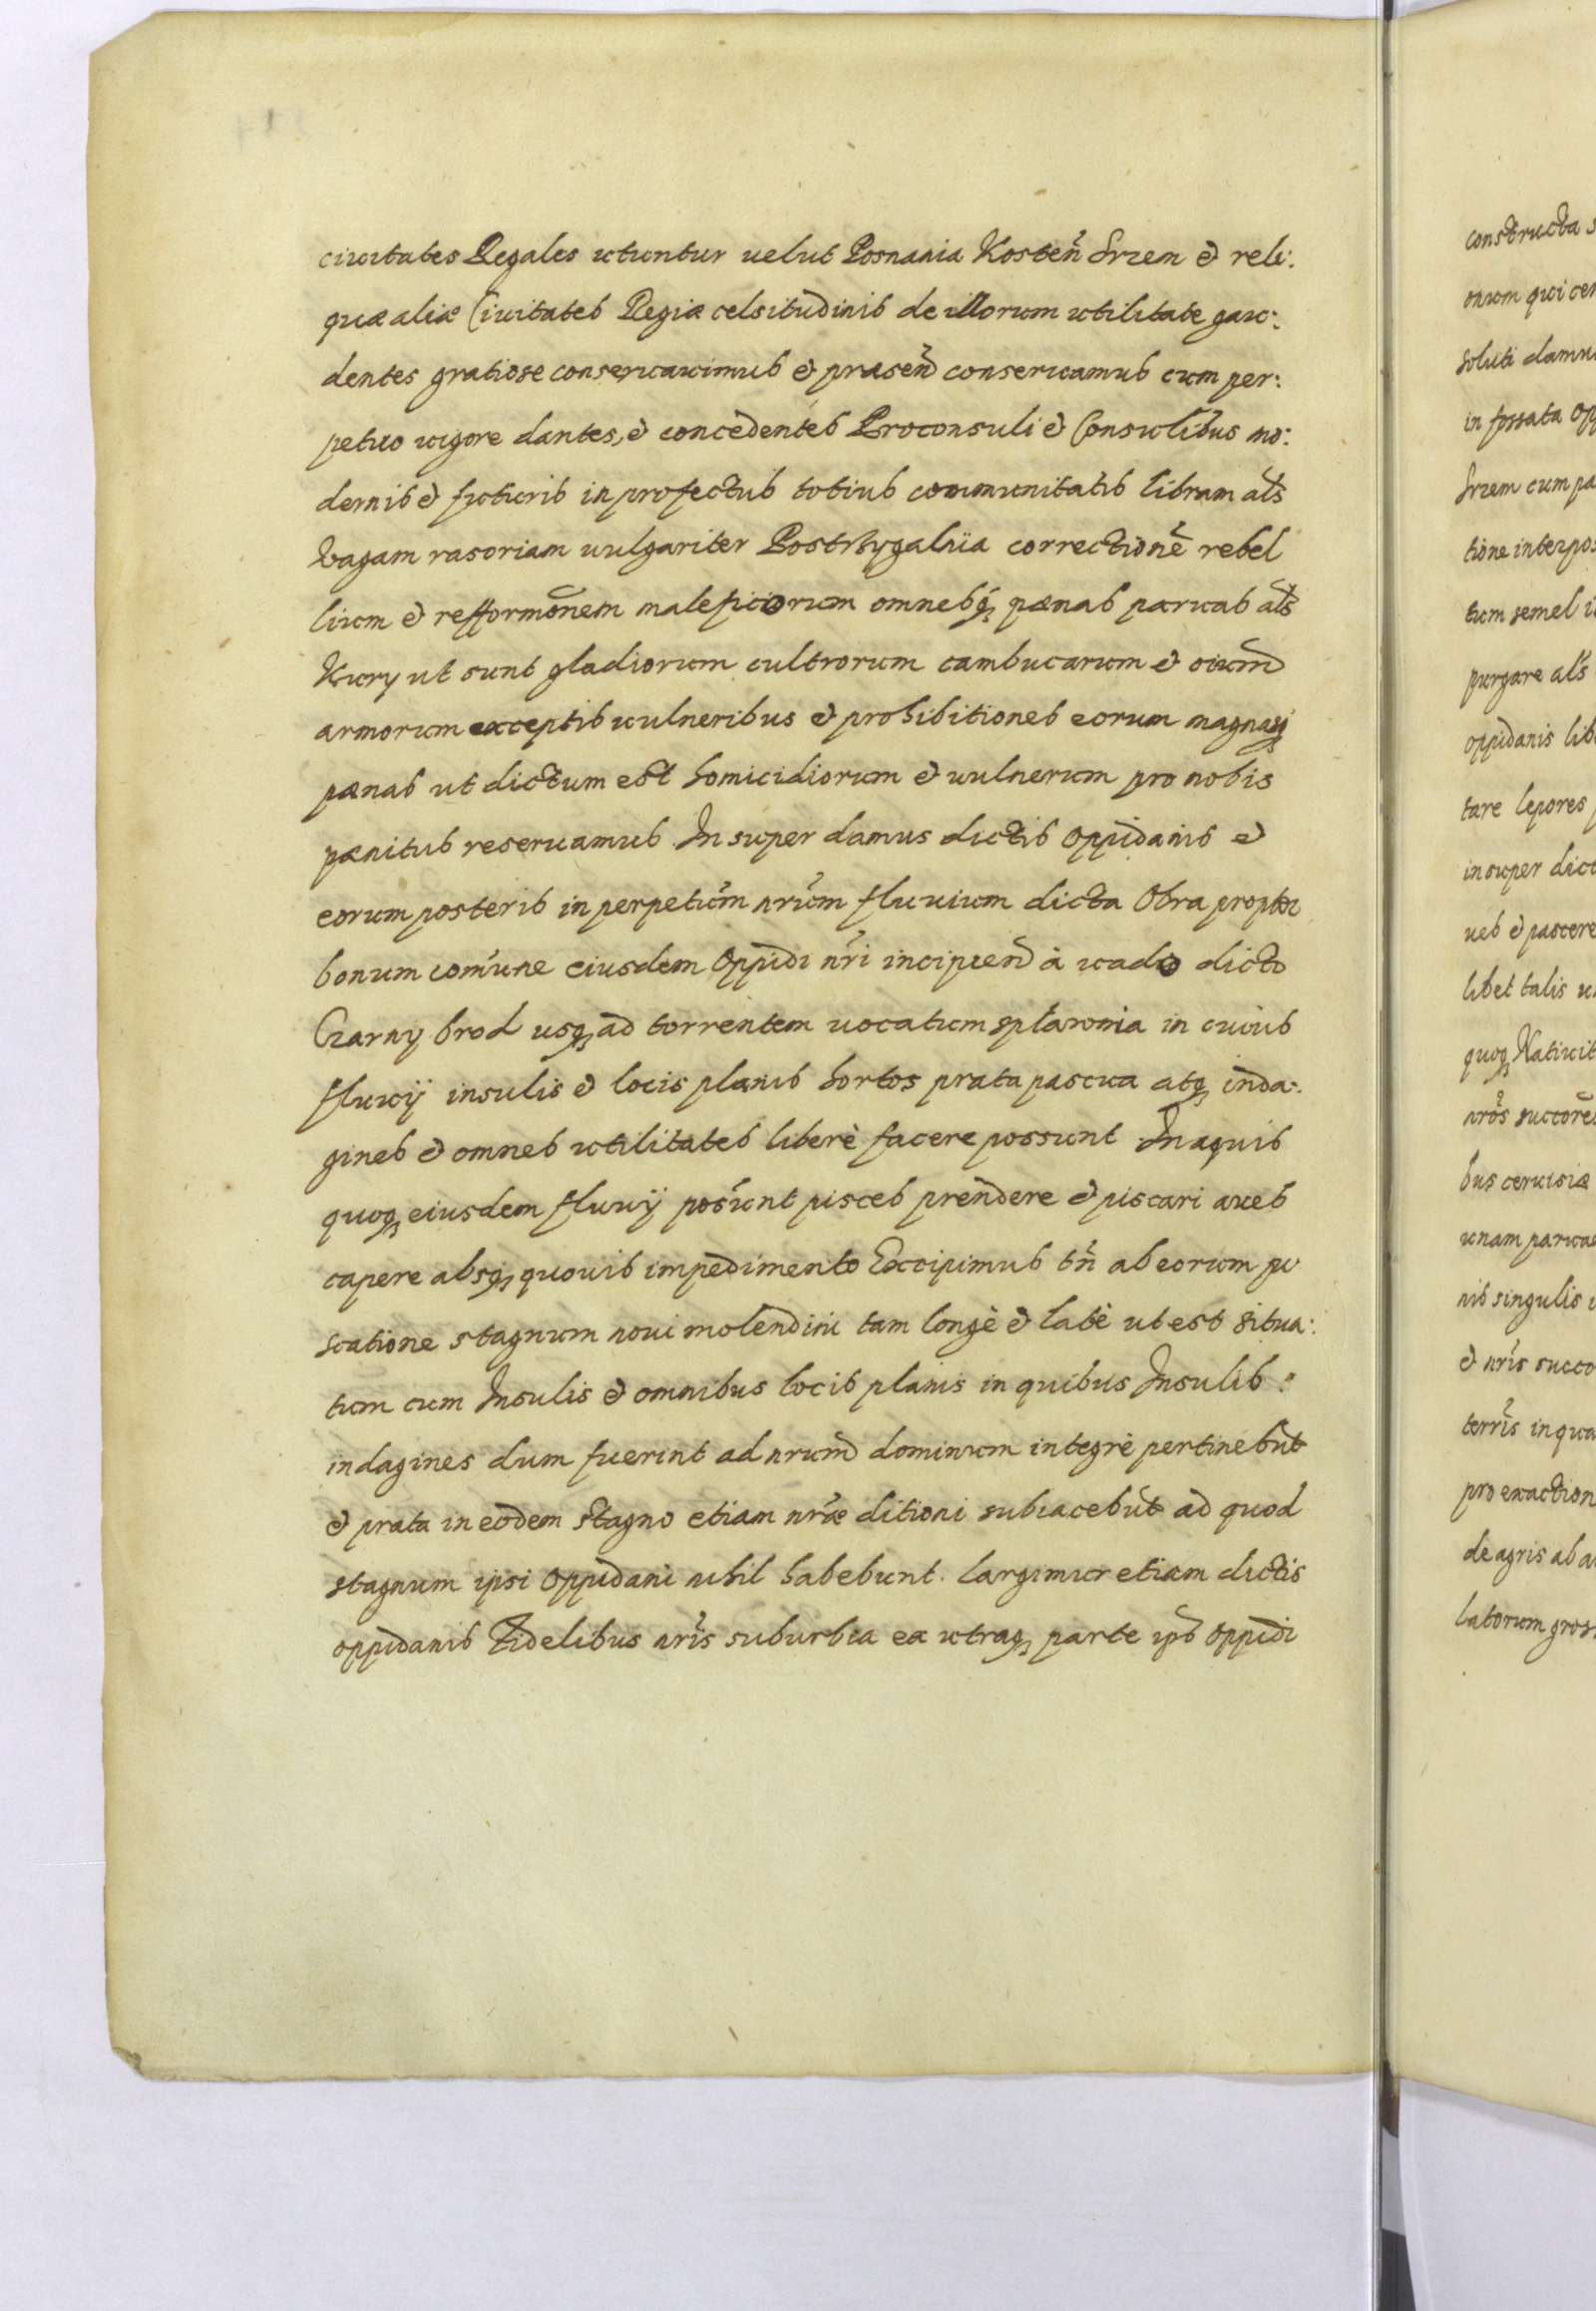 ciuitates Regales utuntur uelut Posnania Kosteñ Srzem et reli:
quæ aliæ Ciuitates Regiæ celsitudinis de illorum utilitate gau:
dentes gratiose conseruauimus et præsend conseruamus cum per:
petuo uigore dantes, et concedentes Proconsuli et Consulibus mo:
dernis et futuris in profectus totius communitatis libram als
Vagam rasoriam uulgariter Postrzygalnia correctionē rebel
lium et refformōnem maleficiorum omnesq pænas paruas als
Kury ut sunt gladiorum cultrorum cambucarum et oium
armorum exceptis uulneribus et prohibitiones eorum magnasq
pænas ut dictum est homicidiorum et uulnerum pro nobis
pænitus reseruamus. Insuper damus dictis Oppidanis et
eorum posteris in perpetūm nrūm fluuium dicta Obra propter
bonum com̄une eiusdem Oppidi nr̄i incipiend à uado dicto
Czarny brod usq ad torrentem uocatum spławnia in cuius
fluuij insulis et locis planis hortos prata pascua atq inda:
gines et omnes utilitates liberè facere possunt. In aquis
quoq eiusdem fluuij poss̄unt pisces prendere et piscari aues
capere absq quouis impedimento Excipimus tn̄ ab eorum pi
scatione stagnum noui molendini tam longè et latè ut est situa:
tum cum Insulis et omnibus locis planis in quibus Insulis:
indagines dum fuerint ad nrum dominium integrè pertinebūt
et prata in eodem stagno etiam nræ ditioni subiacebūt ad quod
stagnum ipsi Oppidani nihil habebunt. Largimur etiam dictis
oppidanis Fidelibus nr̄is suburbia ex utraq parte ips Oppidi
constructa
onum qui
soluti
in fossata
Srzem cum
tione
tum semel
purgare als
oppidanis
tare lepores
insuper
ues et pascere
libet talis
quoq
nrōs
bus ceruisiæ
unam
nis singulis
et nr̄is
terrīs in
pro
de agris ab
latorum